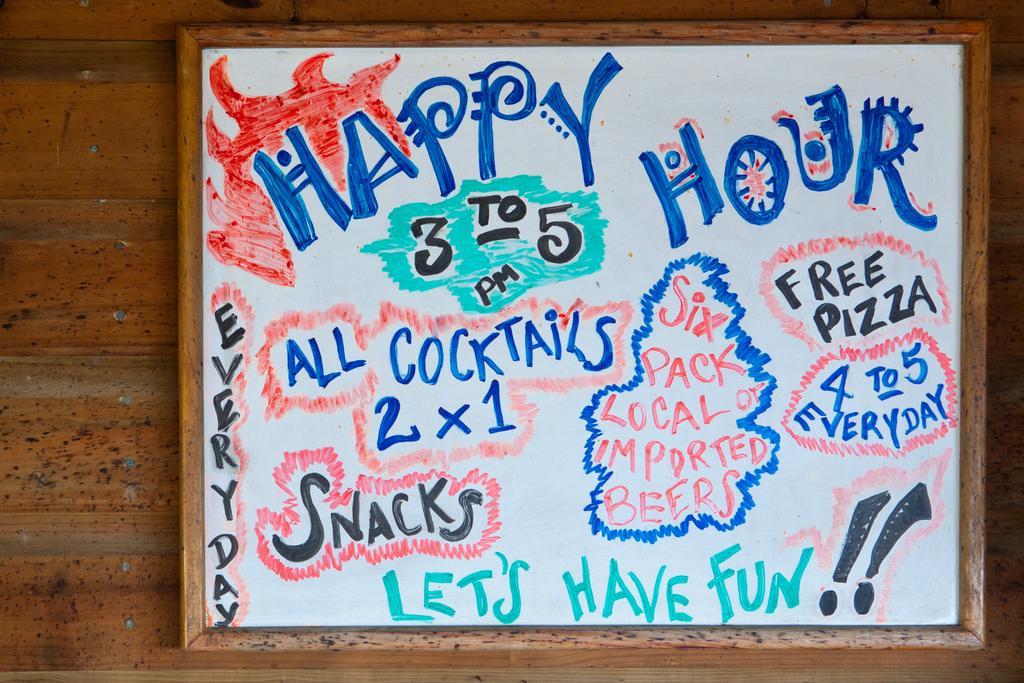 HAPPY HOUR
3 TO 5
PM
EVERYDAY
ALL COCKTAILS
2 x 1
SNACKS
SIX
PACK
LOCAL or
IMPORTED
BEERS
FREE
PIZZA
4 TO 5
EVERYDAY
LET'S HAVE FUN!!